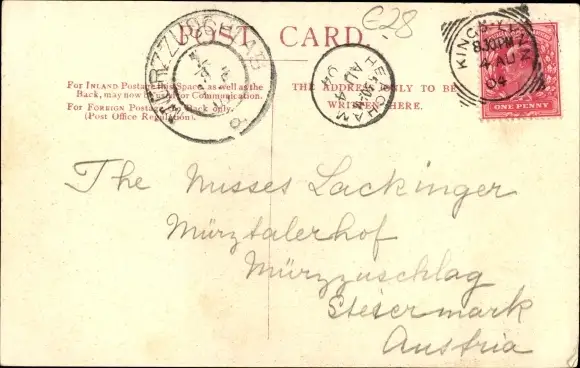 €28
POST CARD.
For INLAND Postage this Space, as well as the
Back, may now be used for Communication.
For FOREIGN Postage the Back only.
(Post Office Regulation).
THE ADDRESS ONLY TO BE
WRITTEN HERE.
MÜRZZUSCHLAG
HEACHAM
AU 4
04
KING'S LYNN
8.30 PM
4 AU
04
ONE PENNY
The Misses Lackinger
Mürztalerhof
Mürzzuschlag
Steiermark
Austria